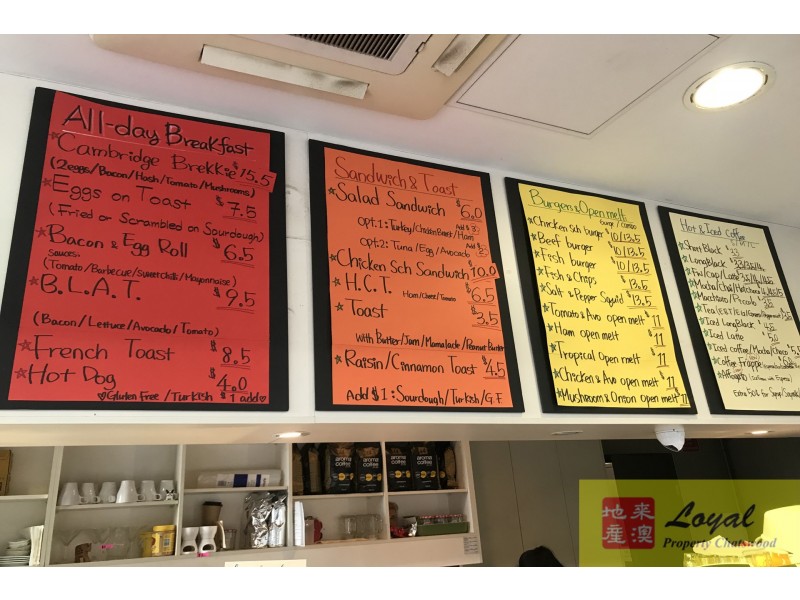 All-day Breakfast
Cambridge Brekkie $15.5
(2eggs/Bacon/Hash/Tomato/Mushrooms)
Eggs on Toast $7.5
(Fried or Scrambled on Sourdough)
Bacon & Egg Roll $6.5
sauces:
(Tomato/Barbecue/Sweet Chilli/Mayonnaise)
B.L.A.T. $9.5
(Bacon/Lettuce/Avocado/Tomato)
French Toast $8.5
Hot Dog $4.0
Gluten Free/Turkish $1 add
Sandwich & Toast
Salad Sandwich $6.0
Opt.1: Turkey/Chicken Breast/Ham Add $
Opt.2: Tuna/Egg/Avocado Add $
Chicken Sch Sandwich $10.0
H.C.T. Ham/Cheese/Tomato $6.5
Toast $3.5
with Butter/Jam/Mamalade/Peanut Butter
Raisin/Cinnamon Toast $4.5
Add $1: Sourdough/Turkish/G.F
Burgers & Open melt
burger / combo
Chicken Sch burger $10/13.5
Beef burger $10/13.5
Fish burger $10/13.5
Fish & Chips $13.5
Salt & Pepper Squid $13.5
Tomato & Avo open melt $11
Ham open melt $11
Tropical Open melt $11
Chicken & Avo open melt $11
Mushroom & Onion open melt $11
Hot & Iced Coffee
Short Black
Long Black
Flat/Cap/Latte
Mocha/Chai/Hot choc
Macchiato/Piccolo
Tea
Iced Long Black
Iced Latte
Iced coffee/Mocha/Choco
Coffee Frappe
Affogato
Extra 50c for Syrup/
aroma
coffee
来澳
地產
Loyal
Property Chatswood